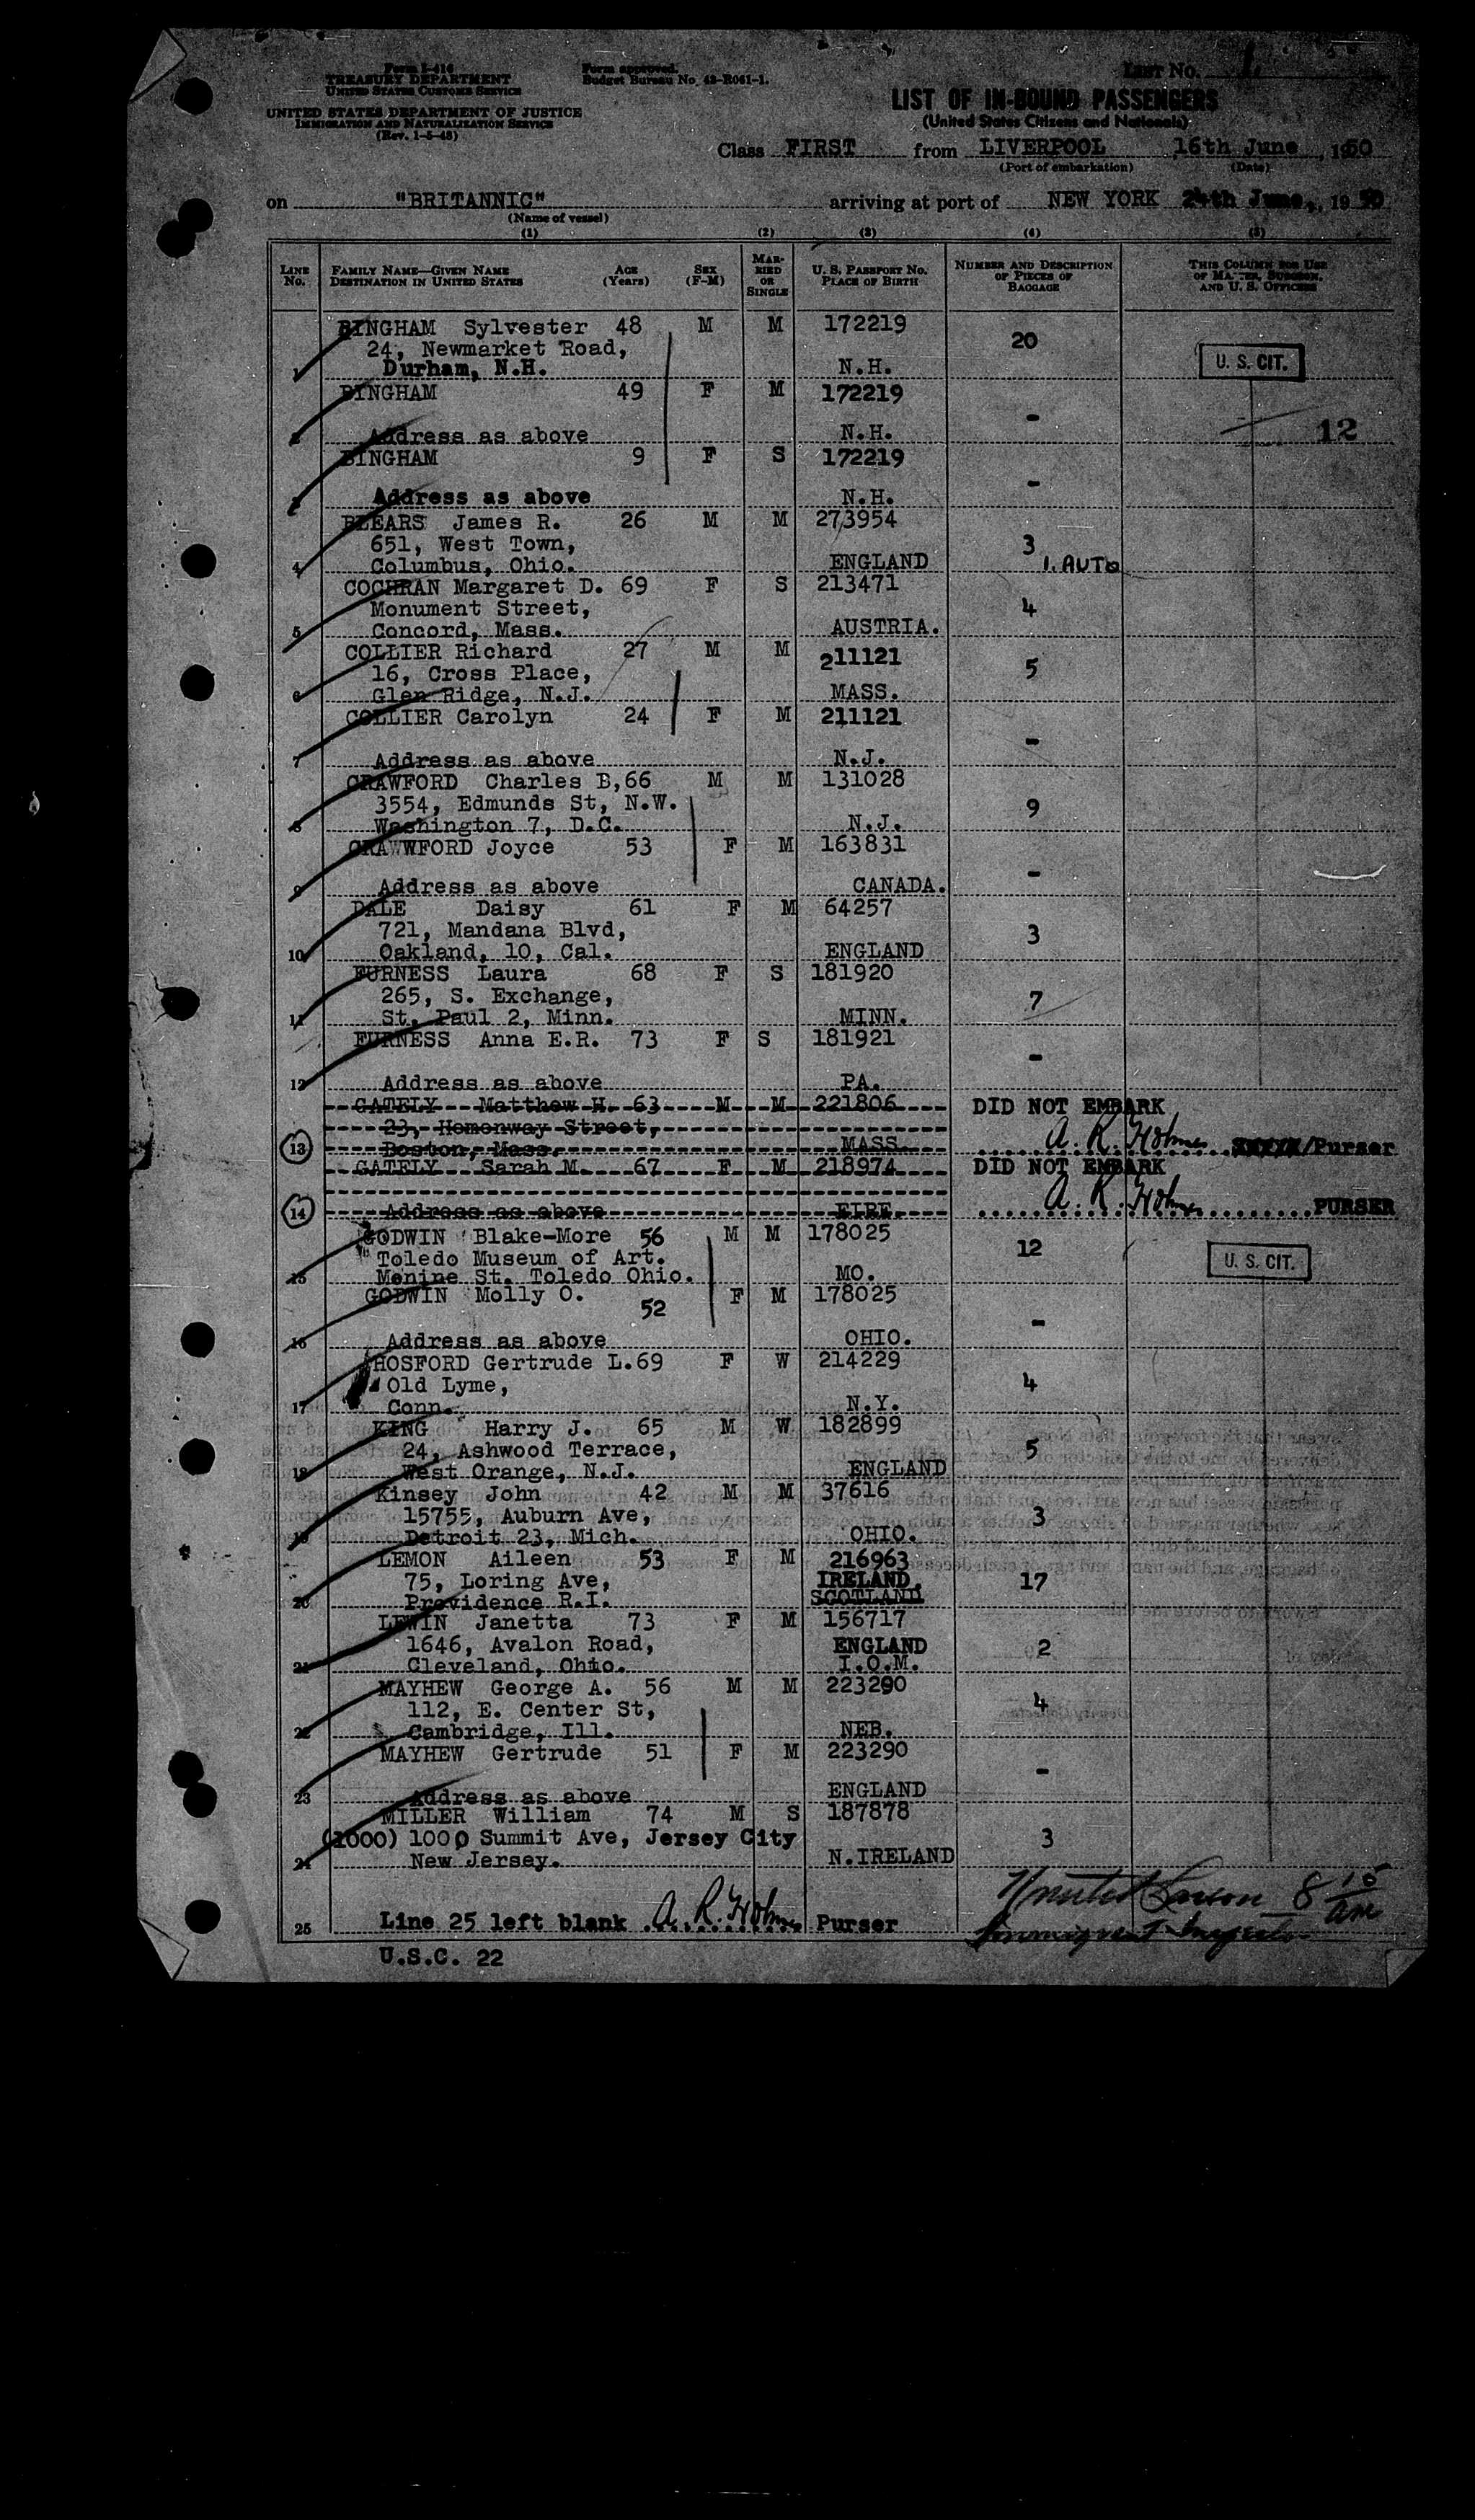 Form I-416
TREASURY DEPARTMENT
UNITED STATES CUSTOMS SERVICE
UNITED STATES DEPARTMENT OF JUSTICE
IMMIGRATION AND NATURALIZATION SERVICE
(Rev. 1-5-48)
Form approved.
Budget Bureau No. 43-R061-1.
LIST No. 1
LIST OF IN-BOUND PASSENGERS
(United States Citizens and Nationals)
Class FIRST from LIVERPOOL 16th June, 1950
(Port of embarkation) (Date)
on "BRITANNIC" arriving at port of NEW YORK 24th June, 1950
(Name of vessel)
(1) (2) (3) (4) (5)
LINE No. FAMILY NAME—GIVEN NAME DESTINATION IN UNITED STATES AGE (Years) SEX (F-M) MARRIED OR SINGLE U. S. PASSPORT No. PLACE OF BIRTH NUMBER AND DESCRIPTION OF PIECES OF BAGGAGE THIS COLUMN FOR USE OF MASTER, SURGEON, AND U. S. OFFICERS
BINGHAM Sylvester 48 M M 172219
24, Newmarket Road, 20
1 Durham, N.H. N.H. U. S. CIT.
BINGHAM 49 F M 172219
-
2 Address as above N.H. 12
BINGHAM 9 F S 172219
-
3 Address as above N.H.
BLEARS James R. 26 M M 273954
651, West Town, 3
4 Columbus, Ohio. ENGLAND 1. AUTO
COCHRAN Margaret D. 69 F S 213471
Monument Street, 4
5 Concord, Mass. AUSTRIA.
COLLIER Richard 27 M M 211121
16, Cross Place, 5
6 Glen Ridge, N.J. MASS.
COLLIER Carolyn 24 F M 211121
-
7 Address as above N.J.
CRAWFORD Charles B, 66 M M 131028
3554, Edmunds St, N.W. 9
8 Washington 7, D.C. N.J.
CRAWWFORD Joyce 53 F M 163831
-
9 Address as above CANADA.
DALE Daisy 61 F M 64257
721, Mandana Blvd, 3
10 Oakland, 10, Cal. ENGLAND
FURNESS Laura 68 F S 181920
265, S. Exchange, 7
11 St. Paul 2, Minn. MINN.
FURNESS Anna E.R. 73 F S 181921
-
12 Address as above PA.
GATELY Matthew H. 63 M M 221806 DID NOT EMBARK
23, Hemenway Street,
13 Boston, Mass. MASS. A. R. Holmes /Purser
GATELY Sarah M. 67 F M 218974 DID NOT EMBARK
14 Address as above EIRE. A. R. Holmes PURSER
GODWIN Blake-More 56 M M 178025
Toledo Museum of Art. 12
15 Monine St. Toledo Ohio. MO. U. S. CIT.
GODWIN Molly O. 52 F M 178025
-
16 Address as above OHIO.
HOSFORD Gertrude L. 69 F W 214229
Old Lyme, 4
17 Conn. N.Y.
KING Harry J. 65 M W 182899
24, Ashwood Terrace, 5
18 West Orange, N.J. ENGLAND
Kinsey John 42 M M 37616
15755, Auburn Ave, 3
19 Detroit 23, Mich. OHIO.
LEMON Aileen 53 F M 216963
75, Loring Ave, IRELAND. 17
20 Providence R.I. SCOTLAND
LEWIN Janetta 73 F M 156717
1646, Avalon Road, ENGLAND 2
21 Cleveland, Ohio. I.O.M.
MAYHEW George A. 56 M M 223290
112, E. Center St, 4
22 Cambridge, Ill. NEB.
MAYHEW Gertrude 51 F M 223290
-
23 Address as above ENGLAND
MILLER William 74 M S 187878
(1000) 1000 Summit Ave, Jersey City 3
24 New Jersey. N.IRELAND
8 15 am
25 Line 25 left blank A. R. Holmes Purser Immigrant Inspector
U.S.C. 22